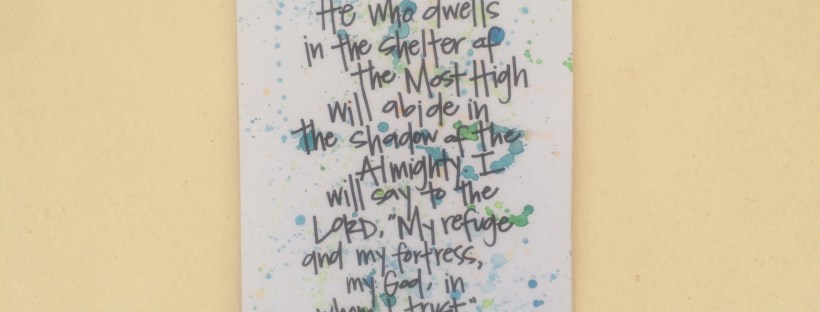 He who dwells
in the shelter of
the Most High
will abide in
the shadow of the
Almighty. I
will say to the
LORD, "My refuge
and my fortress,
my God, in
whom I trust"